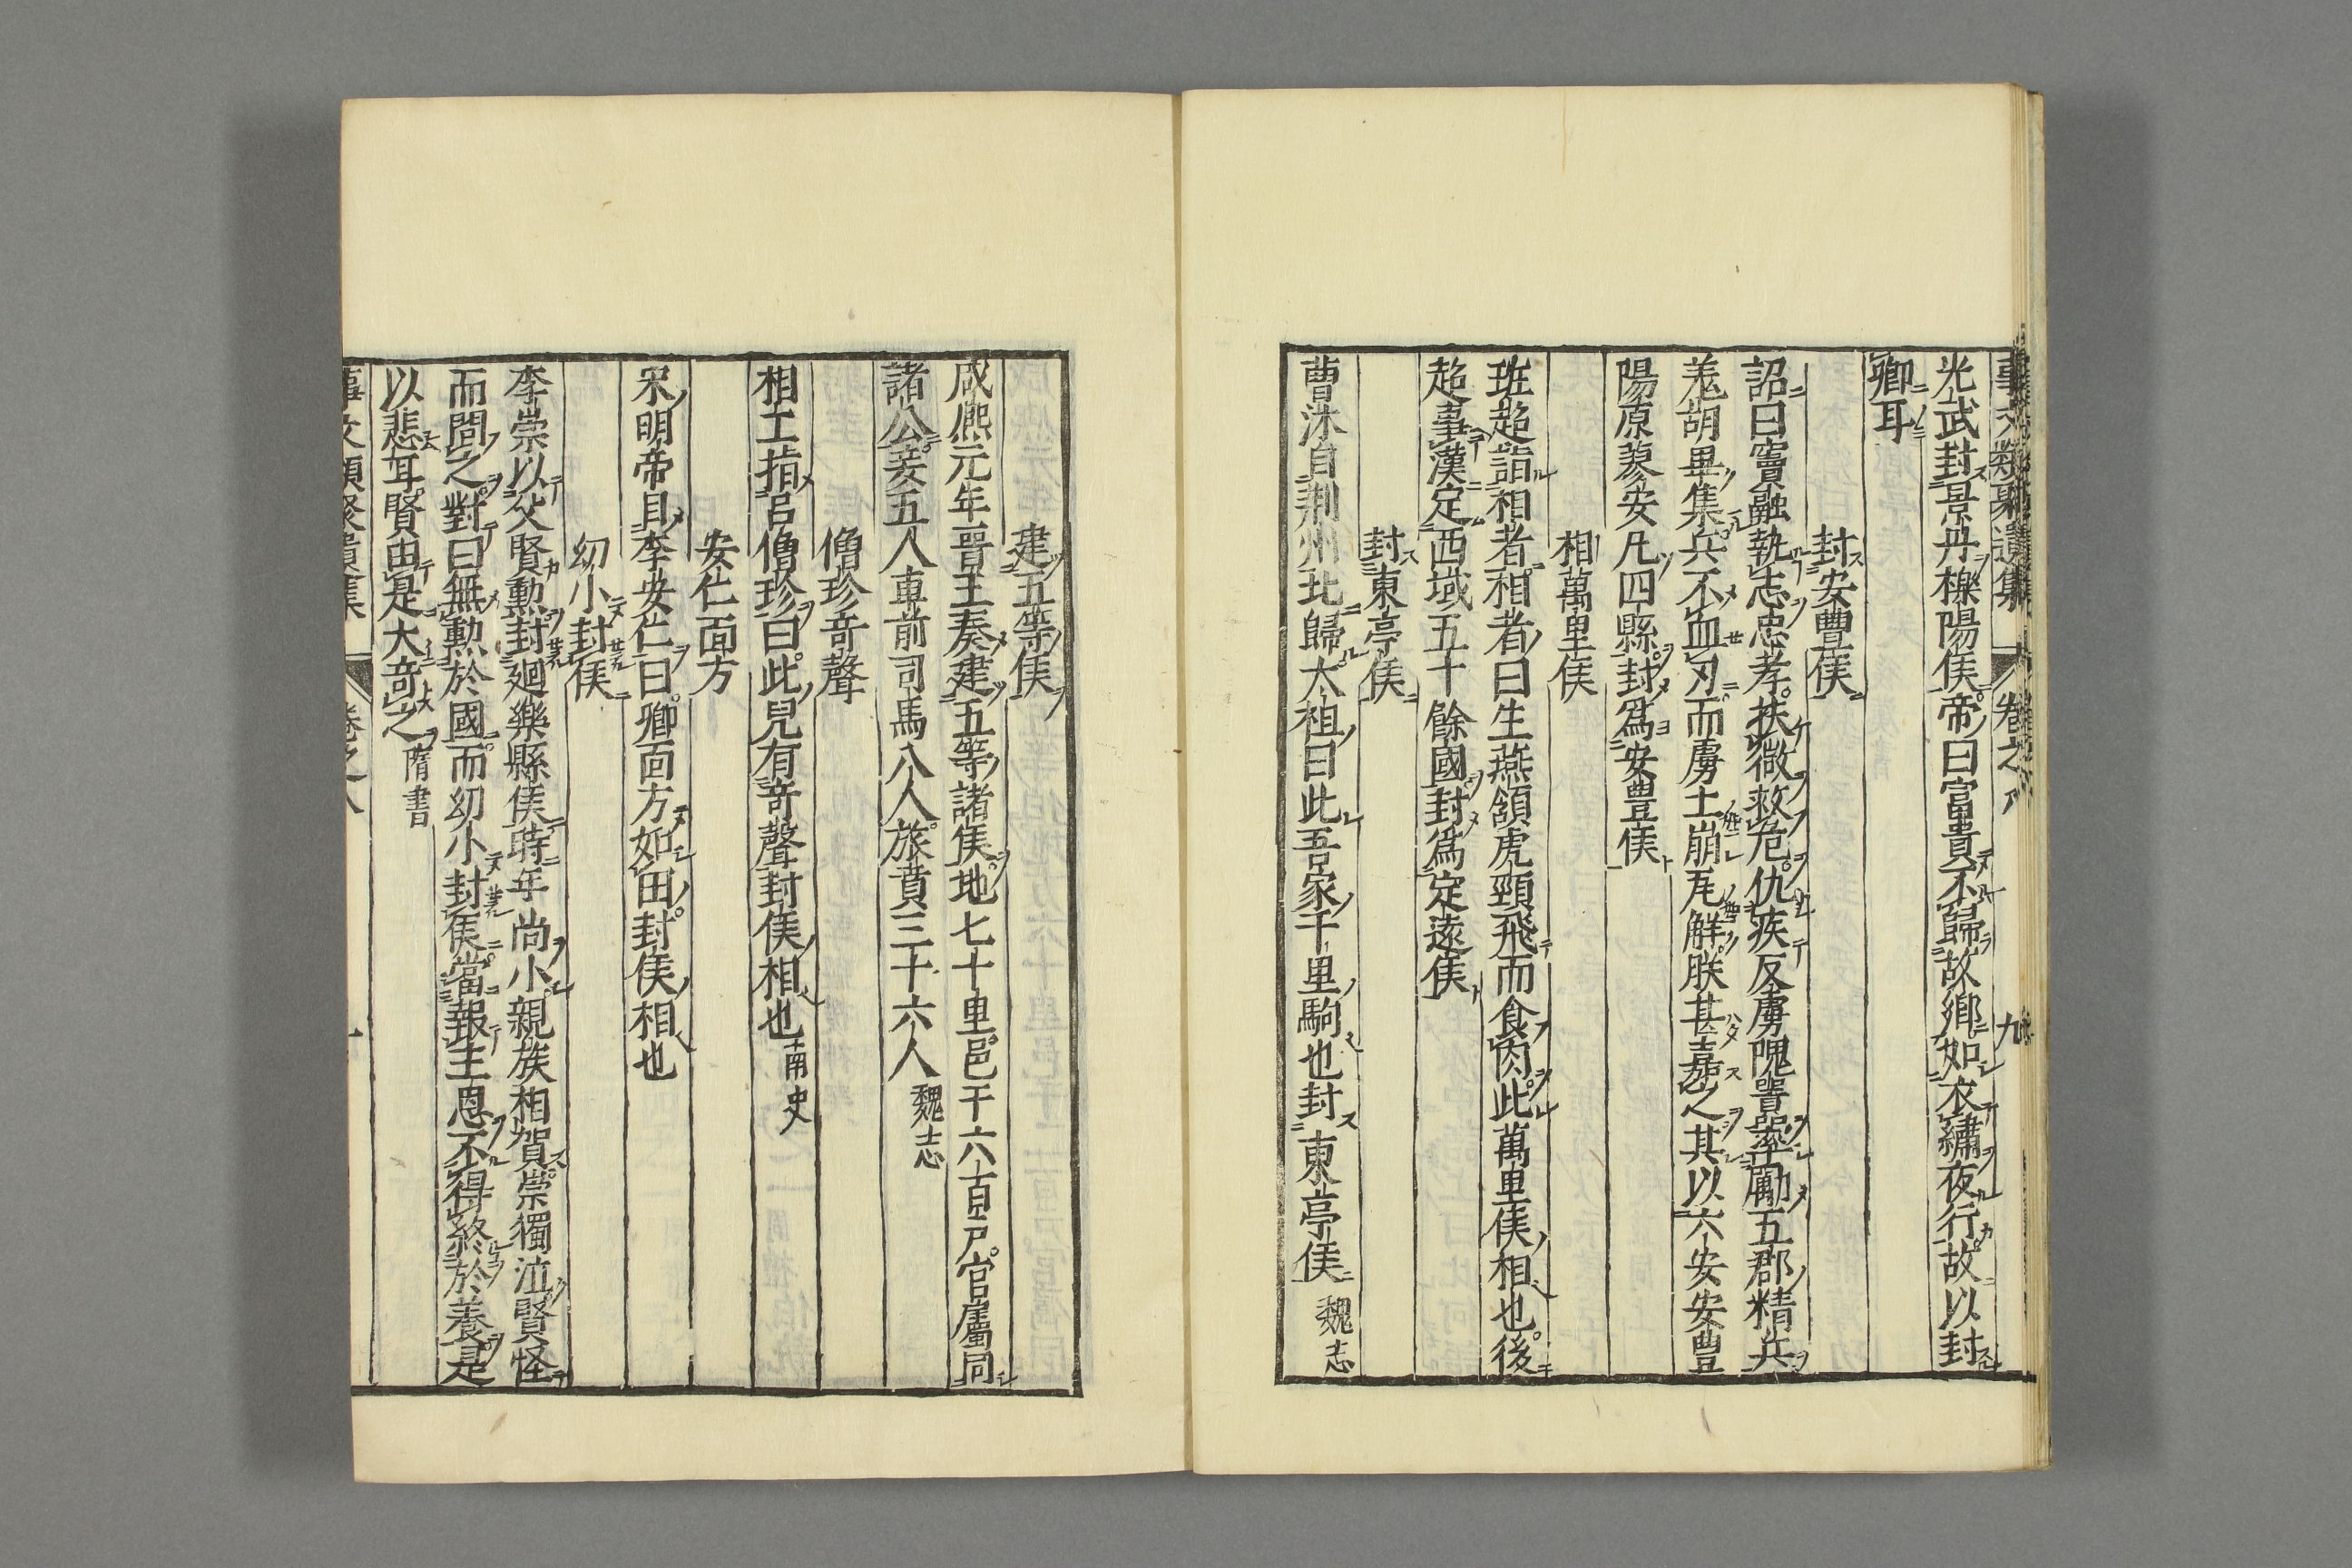 事文類聚遺集 卷之八 九
光武封景丹櫟陽侯帝曰富貴不歸故鄉如衣繡夜行故以封
卿耳
封安豐侯
詔曰竇融執志忠孝扶微救危仇疾反虜隗囂率勵五郡精兵
羌胡畢集兵不血刃而虜土崩瓦解朕甚嘉之其以六安安豐
陽原蓼安凡四縣封爲安豊侯
相萬里侯
班超詣相者相者曰生燕頷虎頸飛而食肉此萬里侯相也後
超事漢定西域五十餘國封爲定遠侯
封東亭侯
曹沐自荆州北歸太祖曰此吾家千里駒也封東亭侯 魏志
建五等侯
咸熈元年晋王奏建五等諸侯地七十里邑千六百戸官屬同
諸公妾五人車前司馬八人旅賁三十六人 魏志
僧珍竒聲
相工指呂僧珍曰此兒有竒聲封侯相也 南史
安仁面方
宋明帝目李安仁曰卿面方如田封侯相也
幼小封侯
李崇以父賢勲封廻樂縣侯時年尚小親族相賀崇獨泣賢怪
而問之對曰無勲於國而幼小封侯當報主恩不得終於養是
以悲耳賢由是大竒之 隋書
事文類聚遺集 卷之八